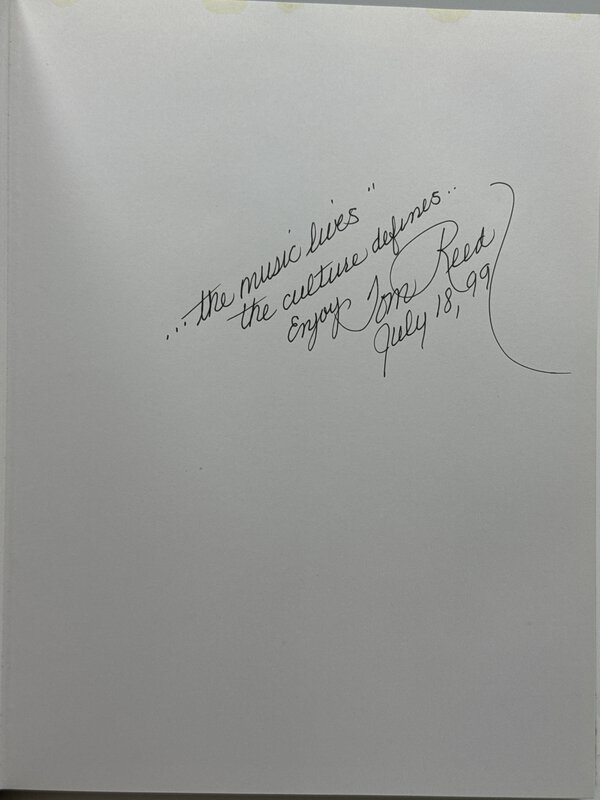 ...the music lives"
the culture defines..
Enjoy Tom Reed
July 18, 99